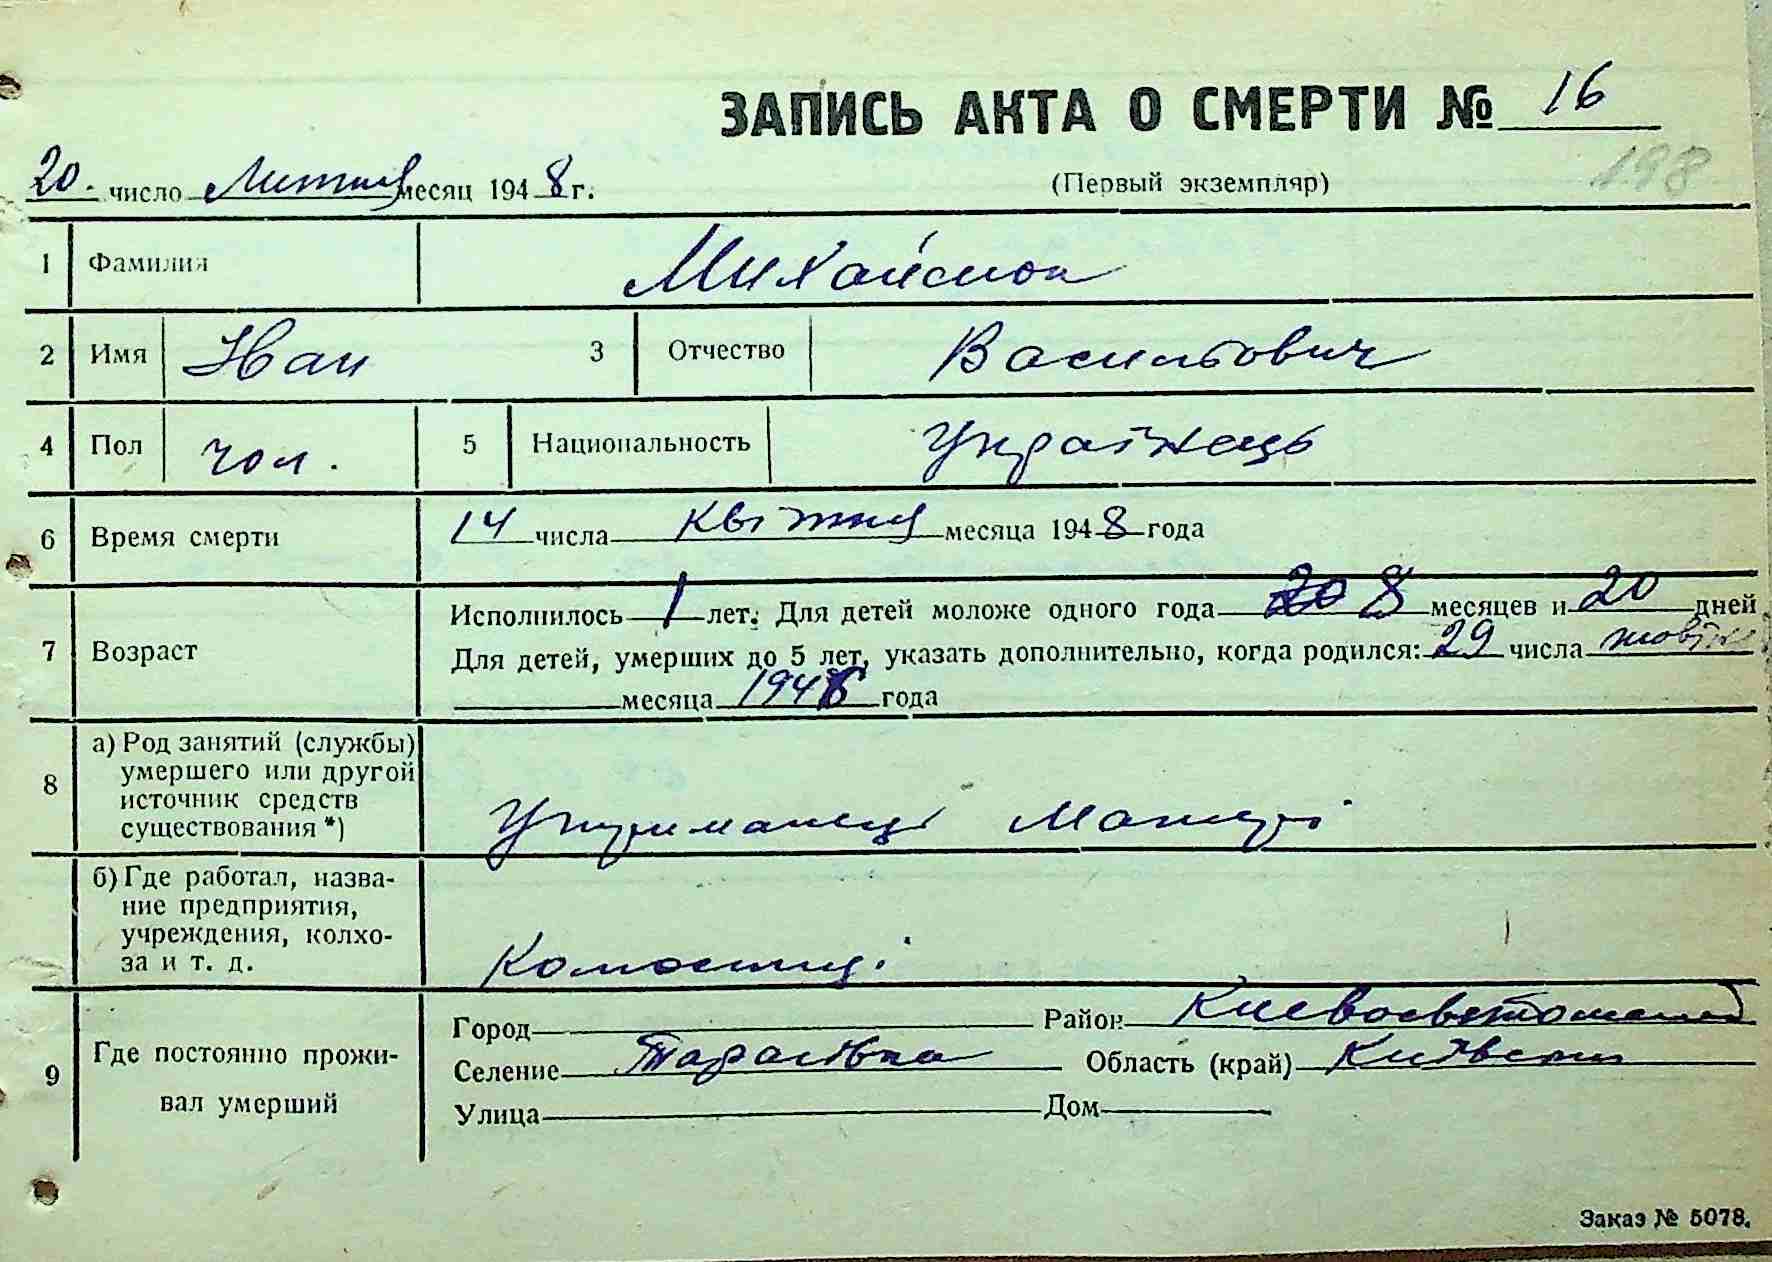 ЗАПИСЬ АКТА О СМЕРТИ № 16
198
20. число месяц 1948 г.
(Первый экземпляр)
1 Фамилия
2 Имя Иван 3 Отчество Васильович
4 Пол чол. 5 Национальность Українець
6 Время смерти 14 числа Квітня месяца 1948 года
7 Возраст
Исполнилось 1 лет. Для детей моложе одного года 8 месяцев и 20 дней
Для детей, умерших до 5 лет, указать дополнительно, когда родился: 29 числа жовтня
месяца 1946 года
8 а) Род занятий (службы)
умершего или другой
источник средств
существования *)
Утриманець Матері
б) Где работал, назва-
ние предприятия,
учреждения, колхо-
за и т. д.
9 Где постоянно прожи-
вал умерший
Город Район Киевосвятошинс
Селение Тарасівка Область (край) Київська
Улица Дом
Заказ № 5078.